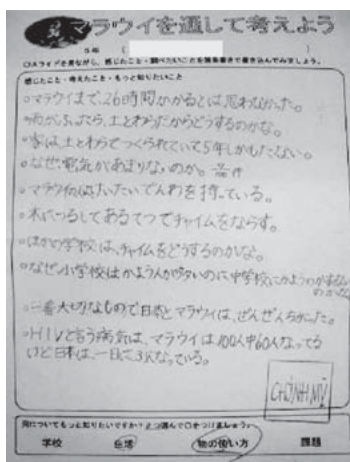 マラウイを通して考えよう
5年 (
○スライドを見ながら、感じたこと・調べたいことを箇条書きで書き込んでみましょう。
感じたこと・考えたこと・もっと知りたいこと
○マラウイまで、26時間かかるとは、思わなかった。
○雨がふったら、土とわらだからどうするのかな。
○家は土とわらでつくられていて5年しかもたない。
○なぜ電気があまりないのか。
○マラウイ
はだいたいでんわを持っている。
○木につるしてあるてつでチャイムをならす。
○ほかの学校は、チャイムをどうするのかな。
○なぜ小学校はかよう人が多いのに中学校
○一番大切なもので日本とマラウイは、ぜんぜんちがった。
○HIVと言う病気は、マラウイは100人中60人なってる
けど日本は、一日に3人なっている。
CHỈNH MỸ
何についてもっと知りたいですか?2つ選んで○をつけましょう。
学校 生活 物の使い方 課題